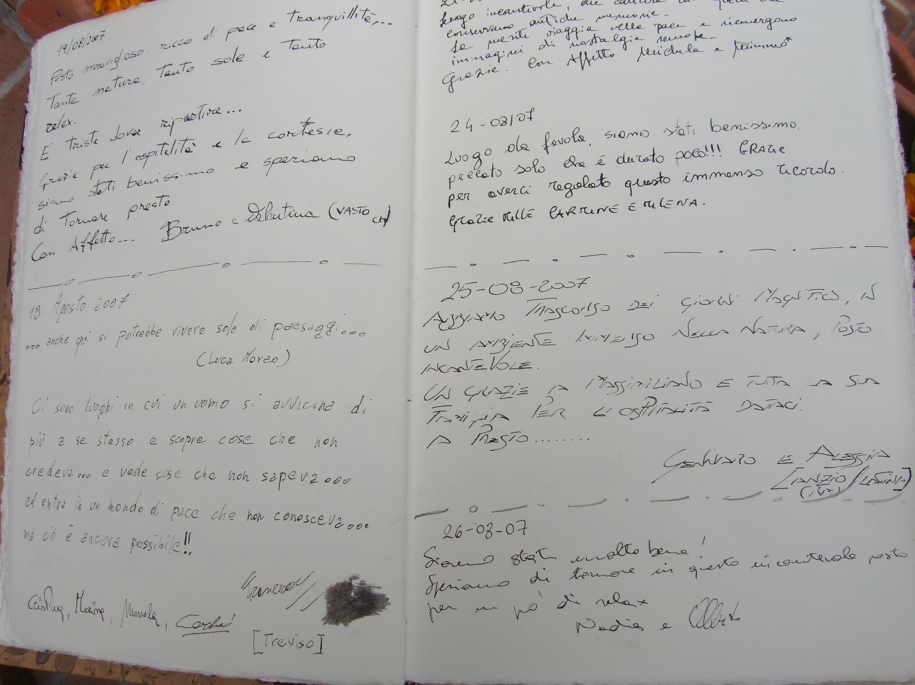 19/08/2007
Posto meraviglioso, ricco di pace e tranquillità,...
Tanta natura, tanto sole e tanto
relax.
E' triste dover ripartire...
Grazie per l'ospitalità e la cortesia,
siamo stati benissimo e speriamo
di tornare presto.
Con Affetto... Bruno e Valentina (VASTO CH)
19 Agosto 2007
... anche qui si potrebbe vivere solo di paesaggi...
(Luca Moreo)
Ci sono luoghi in cui un uomo si avvicina di
più a se stesso e scopre cose che non
credeva... e vede cose che non sapeva...
ed entra in un mondo di pace che non conosceva...
ma ciò è ancora possibile!!
[Treviso]
luogo incantevole, che
conservano antiche memorie.
La mente viaggia nella pace e riemergono
immagini di nostalgia remote.
Grazie. Con Affetto Michela e Mimmo*
24-08/07
Luogo da favola, siamo stati benissimo,
peccato solo che é durato poco!!! GRAZIE
per averci regalato questo immenso ricordo.
GRAZIE MILLE CARMINE E MILENA.
25-08-2007
ABBIAMO TRASCORSO DEI GIORNI MAGNIFICI, IN
UN AMBIENTE IMMERSO NELLA NATURA, POSTO
INCANTEVOLE.
UN GRAZIE A MASSIMILIANO E TUTTA LA SUA
FAMIGLIA PER L'OSPITALITÀ DATACI.
A PRESTO........
GENNARO E ALESSIA
26-08-07
Siamo stati molto bene!
Speriamo di tornare in questo incantevole posto
per un pò di relax
Nadia e